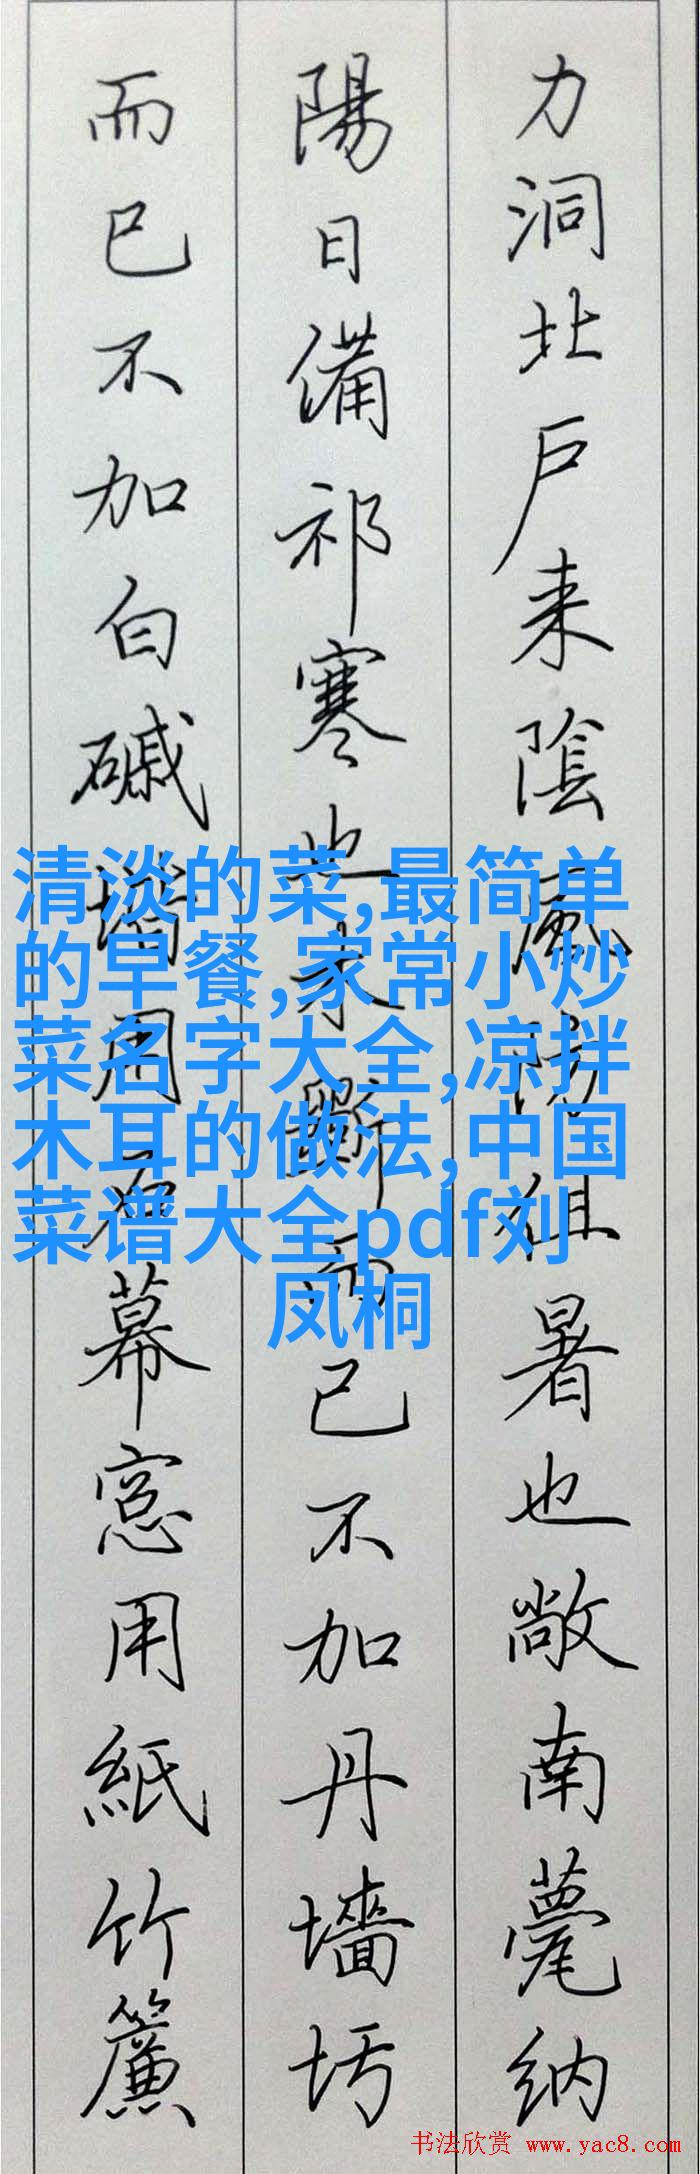 力洞北户来陰風防徂暑也敞南甍纳
陽日備祁寒也木斲而已不加丹墻圬
而已不加白磩堦用石幕窓用紙竹簾
清淡的菜,最简单
的早餐,家常小炒
菜名字大全,凉拌
木耳的做法,中国
菜谱大全pdf刘
凤桐
书法欣赏 www.yac8.com